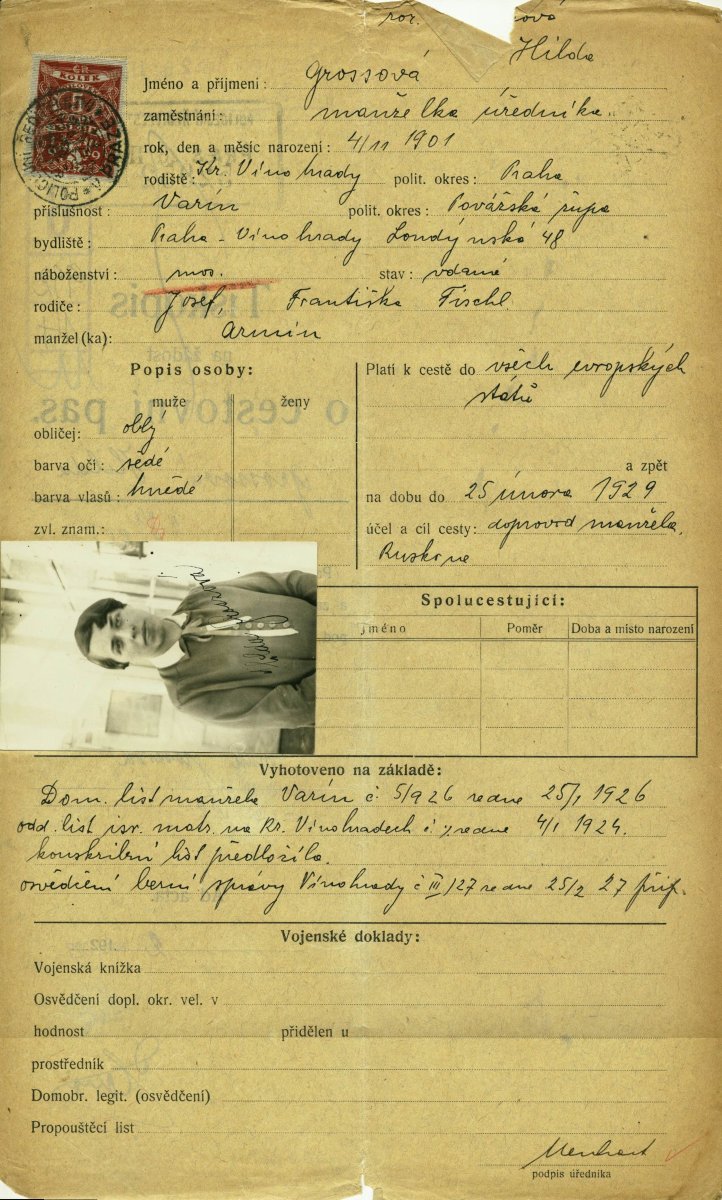 roz. ová
Hilda
Jméno a příjmení: Grossová
zaměstnání: manželka úředníka
rok, den a měsíc narození: 4/11 1901
rodiště: Kr. Vinohrady polit. okres: Praha
příslušnost: Varín polit. okres: Povážská župa
bydliště: Praha - Vinohrady Londýnská 48
náboženství: mos. stav: vdaná
rodiče: Josef, Františka Fischl.
manžel(ka): Armin
Popis osoby:
muže ženy
obličej: oblý
barva očí: šedé
barva vlasů: hnědé
zvl. znam.:
Platí k cestě do všech evropských
států
a zpět
na dobu do 25 února 1929
účel a cíl cesty: doprovod manžela.
Rusko ne
Spolucestující:
Jméno Poměr Doba a místo narození
Vyhotoveno na základě:
Dom. list manžela Varín č. 5/926 ze dne 25/1 1926
odd. list isr. matr. na Kr. Vinohradech č. 7 ze dne 4/1 1924.
konskribční list předložila.
osvědčení berní správy Vinohrady č III/27 ze dne 25/2 27 přip.
Vojenské doklady:
Vojenská knížka
Osvědčení dopl. okr. vel. v
hodnost přidělen u
prostředník
Domobr. legit. (osvědčení)
Propouštěcí list
Menhart
podpis úředníka
KOLEK
5